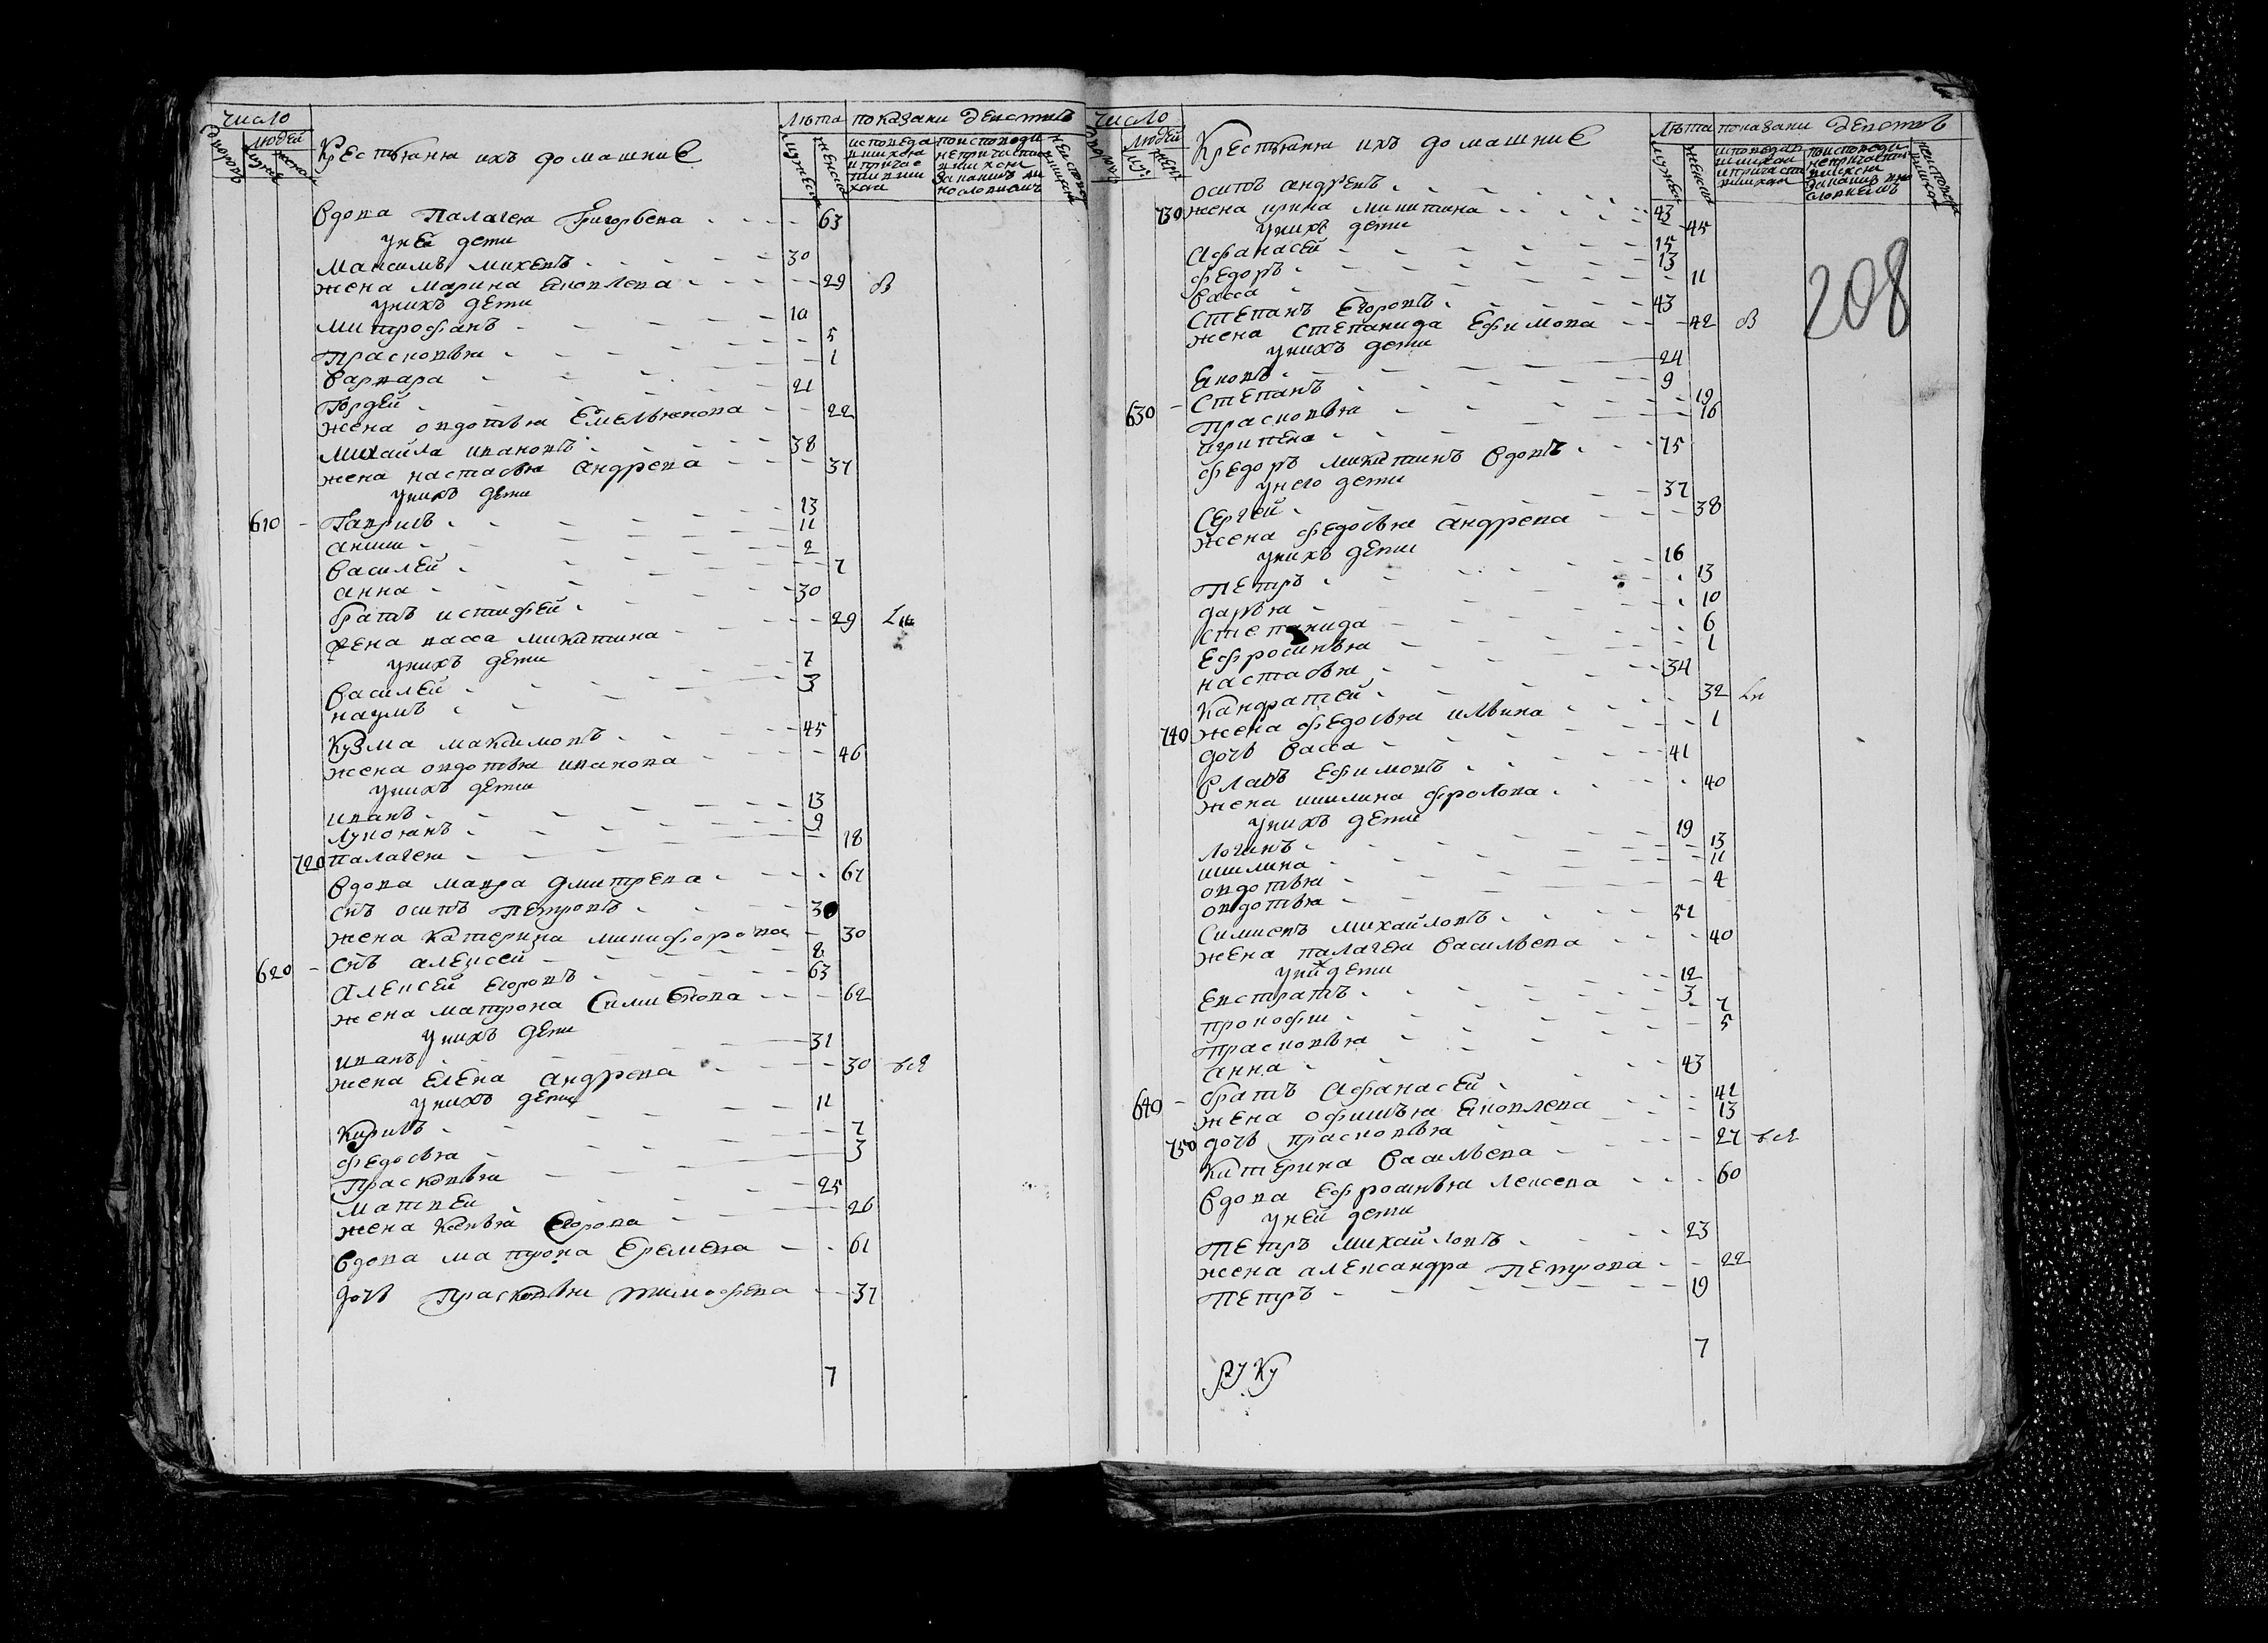 число
дворов
людей
мужес
женск
Крестьяня ихъ домашние
Лѣта
мужеск
женска
показани действъ
вдова Палагея Григорьева 63
у ней дети
Максимъ михевъ 30
жена марина яковлева 29 В
у нихъ дети
митрофанъ 10
Прасковья 5
варвара 1
Гордей 21
жена овдотья Емельянова 22
михайла ивановъ 38
жена настасья андрева 37
у нихъ дети
610 Гаврилъ 13
аким 11
василей 2
анна 7
братъ истифей 30
жена васса микитина 29
у нихъ дети
василей 7
наумъ 3
Кузма максимовъ 45
жена овдотья иванова 46
у нихъ дети
иванъ 13
лукоянъ 9
720 палагея 18
вдова мавра дмитрева 67
снъ осипъ Петровъ 30
жена катерина микифорова 30
620 снъ алексей 8
Алексей егоровъ 63
жена матрона Симионова 62
у нихъ дети
иванъ 31
жена елена андрева 30
у нихъ дети
Кирилъ 11
федосья 7
Прасковья 3
матвей 25
жена егорова 26
вдова матрона Еремева 61
дочь Прасковья тимофева 37
7
число
людей
муж
женс
Крестьяня ихъ домашние
Лѣта
мужеск
женска
показани действъ
208
осипъ андревъ 43
730 жена ирина микитина 45
у нихъ дети
Афанасей 15
федоръ 13
васса 11
Степанъ Егоровъ 43
жена Степанида Ефимова 42 В
у нихъ дети
яковъ 24
630 Степанъ 9
Прасковья 19
огрипена 16
федоръ микитинъ вдовъ 75
у него дети
Сергей 37
жена федосья андрева 38
у нихъ дети
Петръ 16
дарья 13
степанида 10
Ефросинья 6
настасья 1
Кандратей 34
740 жена федосья ильина 32
дочь васса 1
власъ Ефимовъ 41
жена акилина фролова 40
у нихъ дети
логинъ 19
акилина 13
овдотья 11
овдотья 4
Симионъ михайловъ 51
жена палагея васильева 40
у них дети
Евстратъ 12
прокофи 3
Прасковья 7
анна 5
братъ Афанасей 43
640 жена офимья яковлева 42
750 дочь прасковья 13
Катерина васильева 27
вдова Ефросинья лексева 60
у ней дети
Петръ михайловъ 23
жена александра Петрова 22
Петръ 19
7